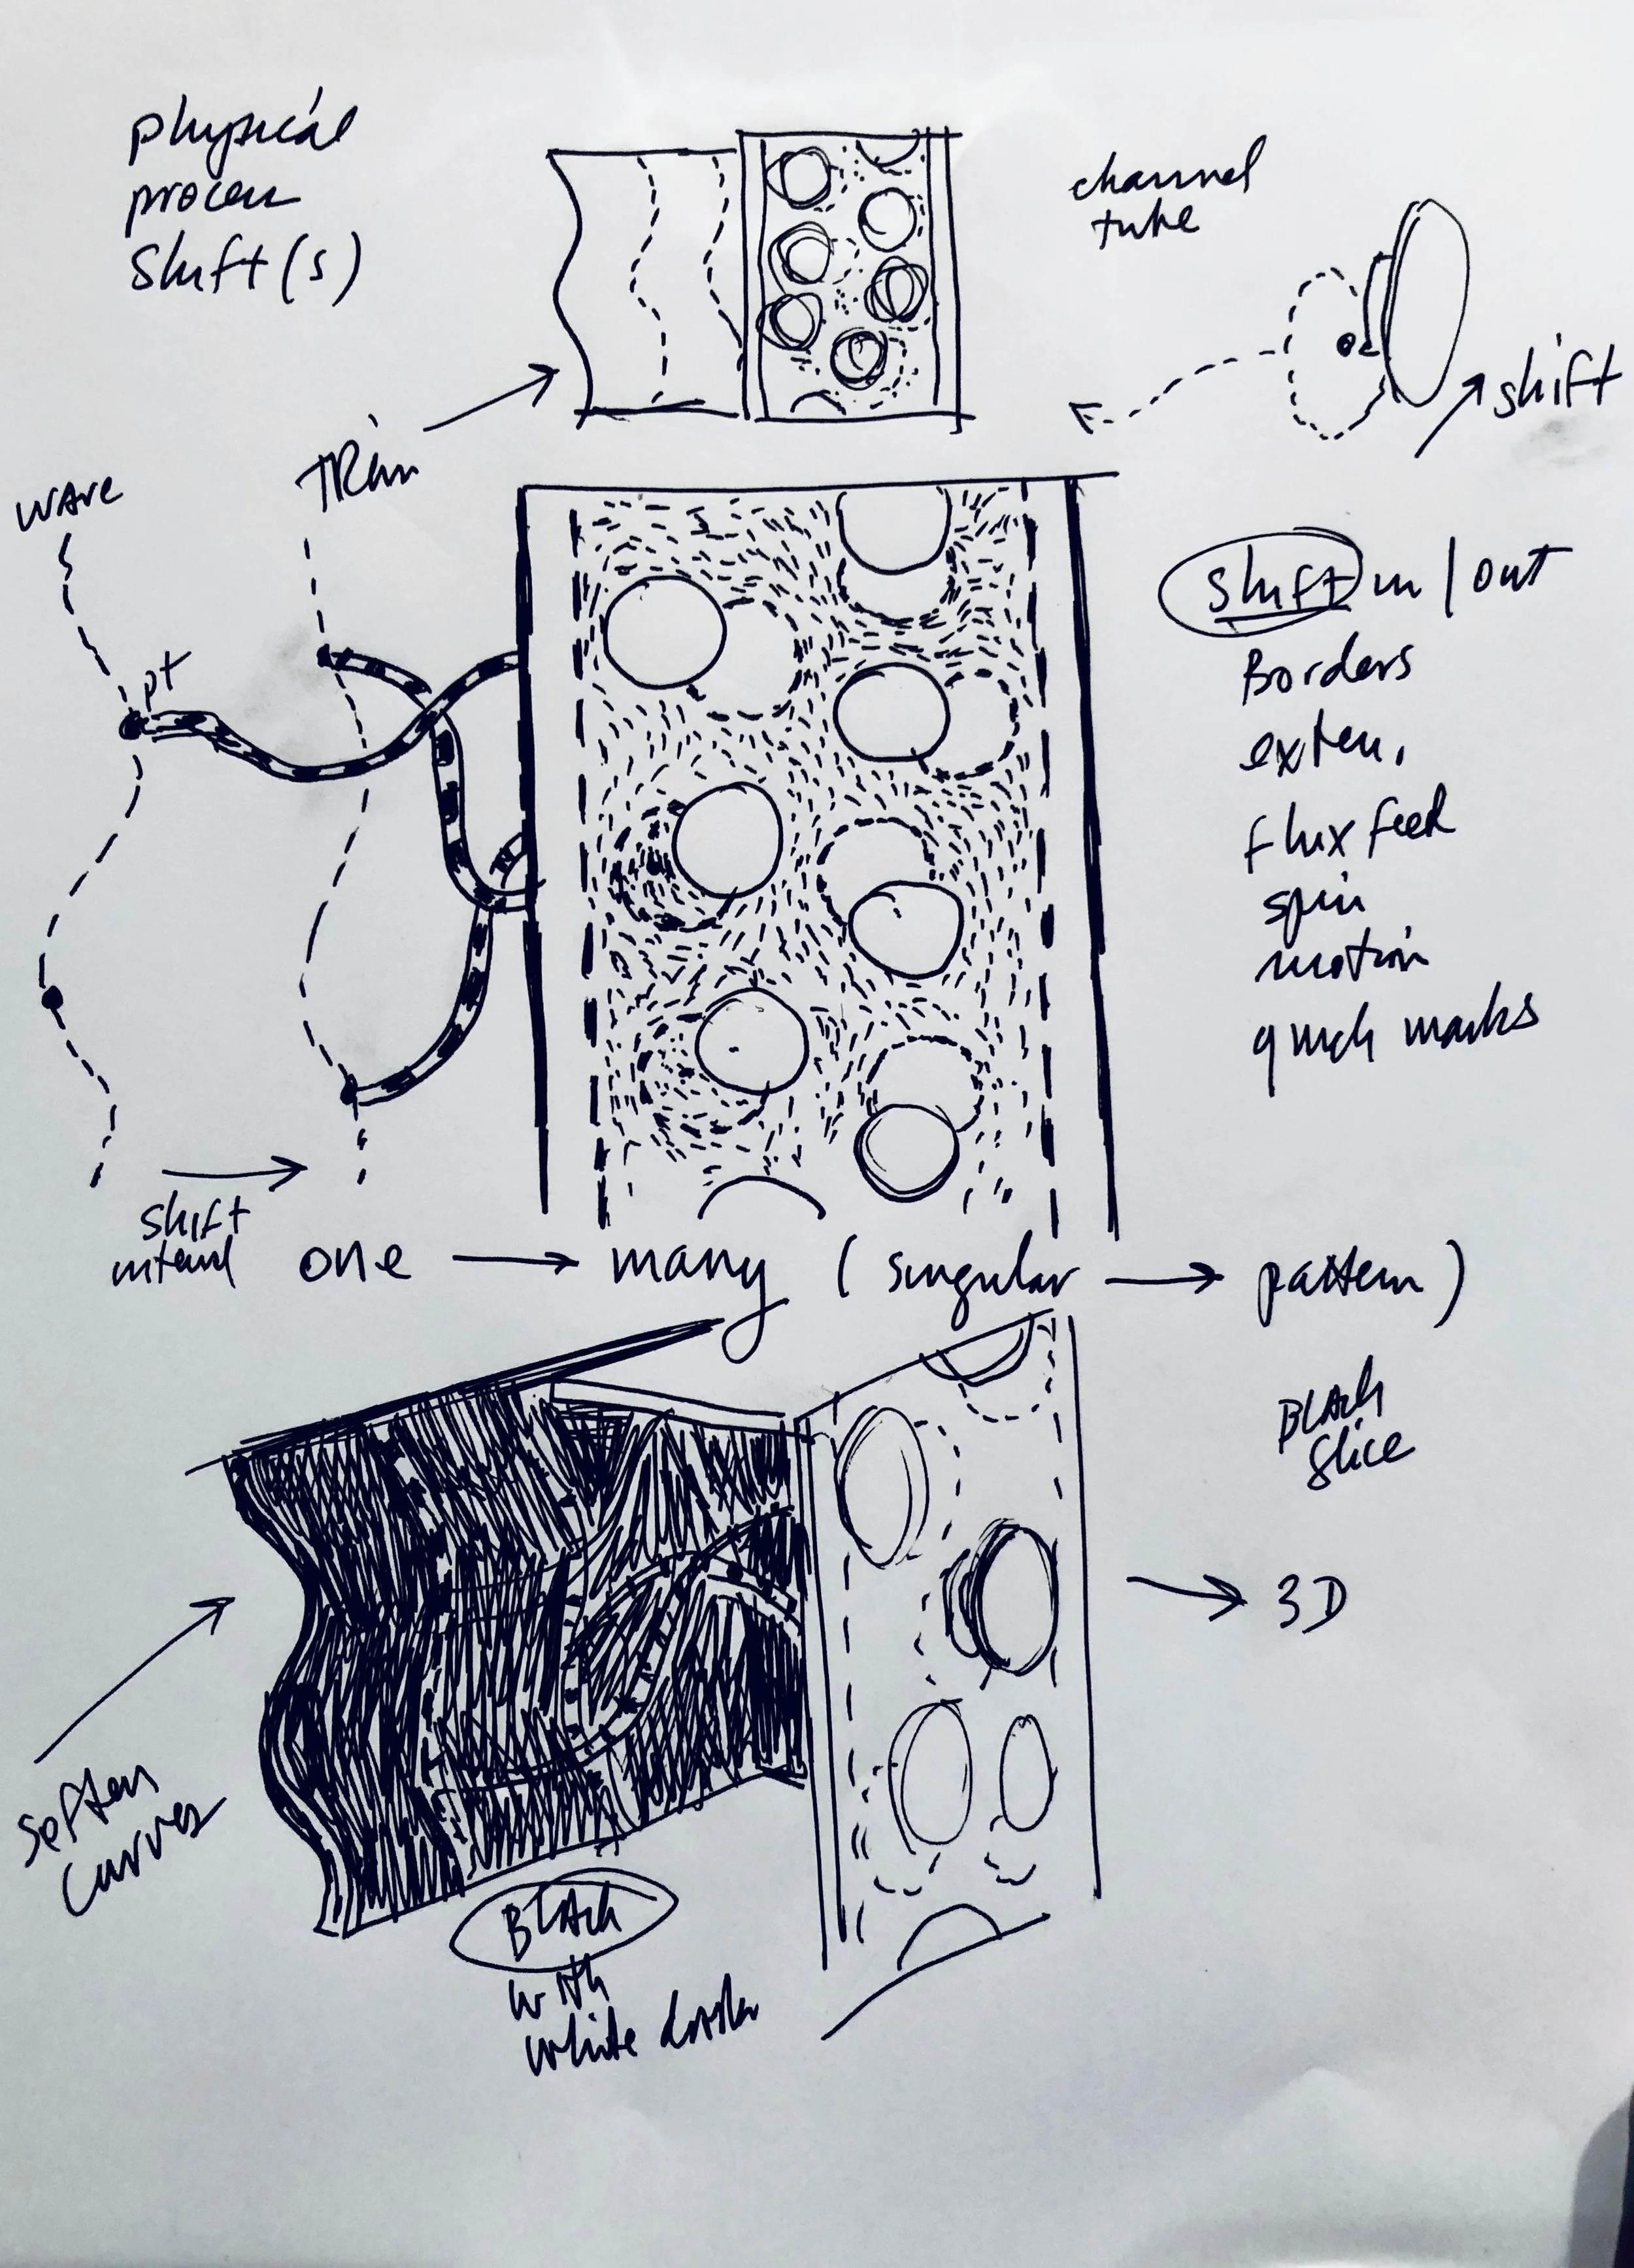 physical
process
shift(s)
channel
tube
shift
TRim
wave
pt
shift in / out
Borders
exten.
flux feed
spin
motion
quick marks
shift
one → many ( singular → pattern )
Black
slice
→ 3D
soften
curves
Black
with
white